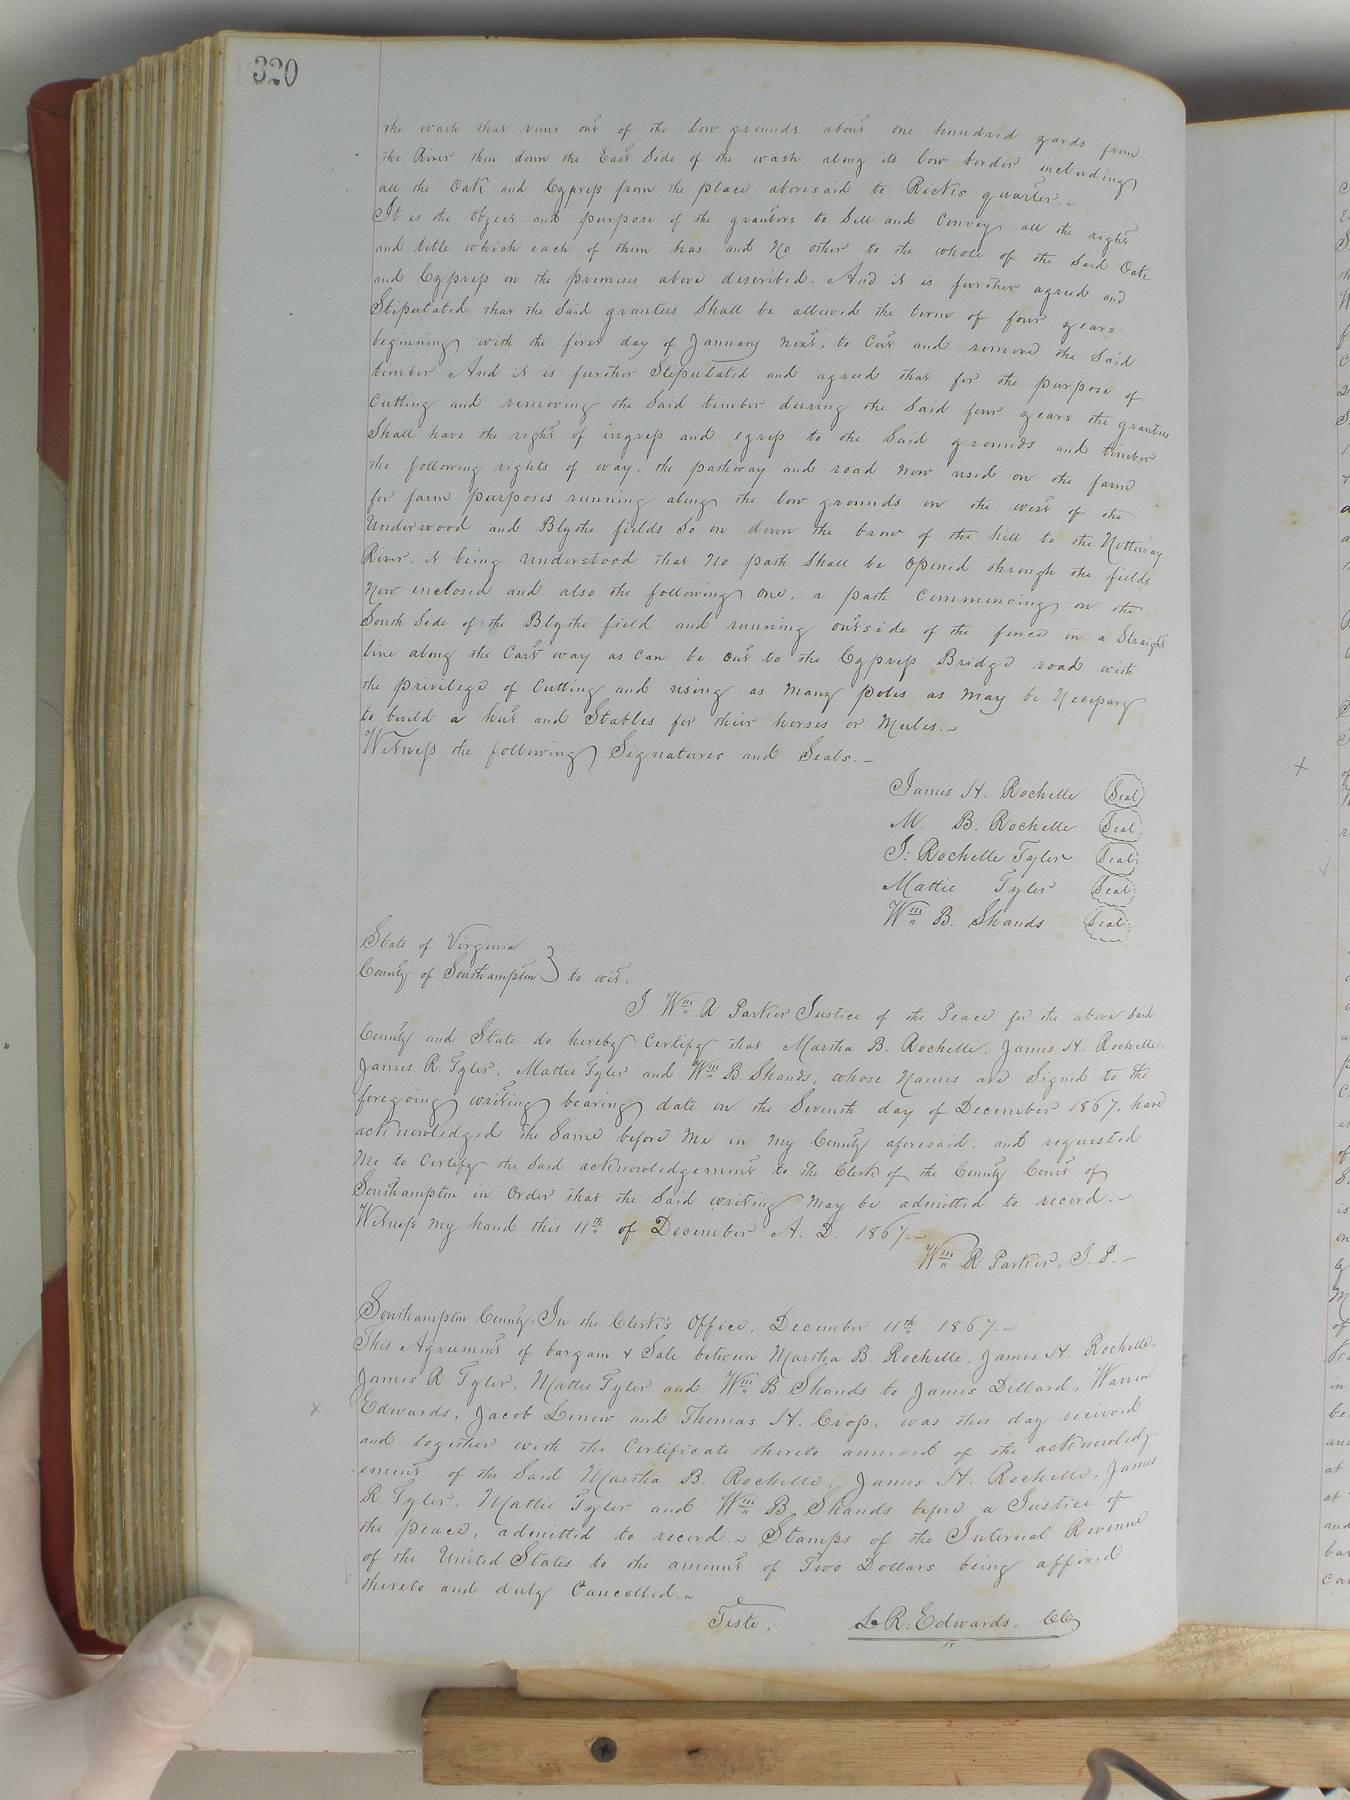 320
the wash that runs out of the low grounds about one hundred yards from
the River then down the East Side of the wash along its low border including
all the Oak and Cypress from the place aforesaid to Ricks quarter.~
It is the object and purpose of the grantors to Sell and Convey all the right
and title which each of them has and No other to the whole of the Said Oak
and Cypress on the premises above described. And it is further agreed and
Stipulated that the Said grantees Shall be allowed the term of four years
beginning with the first day of January Next, to Cut and remove the Said
timber And it is further Stipulated and agreed that for the purpose of
Cutting and removing the Said timber during the Said four years the grantees
Shall have the right of ingress and egress to the Said grounds and timber
the following rights of way. the pathway and road Now used on the farm
for farm purposes running along the low grounds on the west of the
Underwood and Blythe fields So on down the brow of the hill to the Nottoway
River. it being understood that No path Shall be opened through the fields
Now enclosed and also the following one, a path Commencing on the
South Side of the Blythe field and running outside of the fence in a Straight
line along the Cart way as Can be Cut to the Cypress Bridge road with
the privilege of Cutting and using as Many poles as May be Necessary
to build a hut and Stables for their horses or Mules.~
Witness the following Signatures and Seals.—
James H. Rochelle Seal
M. B. Rochelle Seal
J: Rochelle Tyler Seal
Mattie Tyler Seal
Wm B. Shands Seal
State of Virginia
County of Southampton } to wit,
I Wm R Parker Justice of the Peace for the above Said
County and State do hereby Certify that Martha B. Rochelle, James H. Rochelle.
James R. Tyler, Mattie Tyler and Wm B. Shands, whose Names are Signed to the
foregoing writing bearing date on the Seventh day of December 1867, have
acknowledged the Same before Me in My County aforesaid. and requested
Me to Certify the Said acknowledgement to the Clerk of the County Court of
Southampton in Order that the Said writing May be admitted to record.~
Witness My hand this 11th of December A. D. 1867.~
Wm R. Parker, J. P.—
Southampton County, In the Clerk's Office, December 11th 1867.~
This Agreement of bargain & Sale between Martha B. Rochelle, James H. Rochelle,
James R. Tyler, Mattie Tyler and Wm B. Shands to James Dillard, Warren
Edwards, Jacob Lenow and Thomas H. Crop, was this day received
and together with the Certificate thereto annexed of the acknowledg-
ement of the Said Martha B. Rochelle, James H. Rochelle. James
R. Tyler, Mattie Tyler and Wm B. Shands before a Justice of
the peace, admitted to record.~ Stamps of the Internal Revenue
of the United States to the amount of Two Dollars being affixed
thereto and duly Cancelled.~
Teste, L. R. Edwards, CC